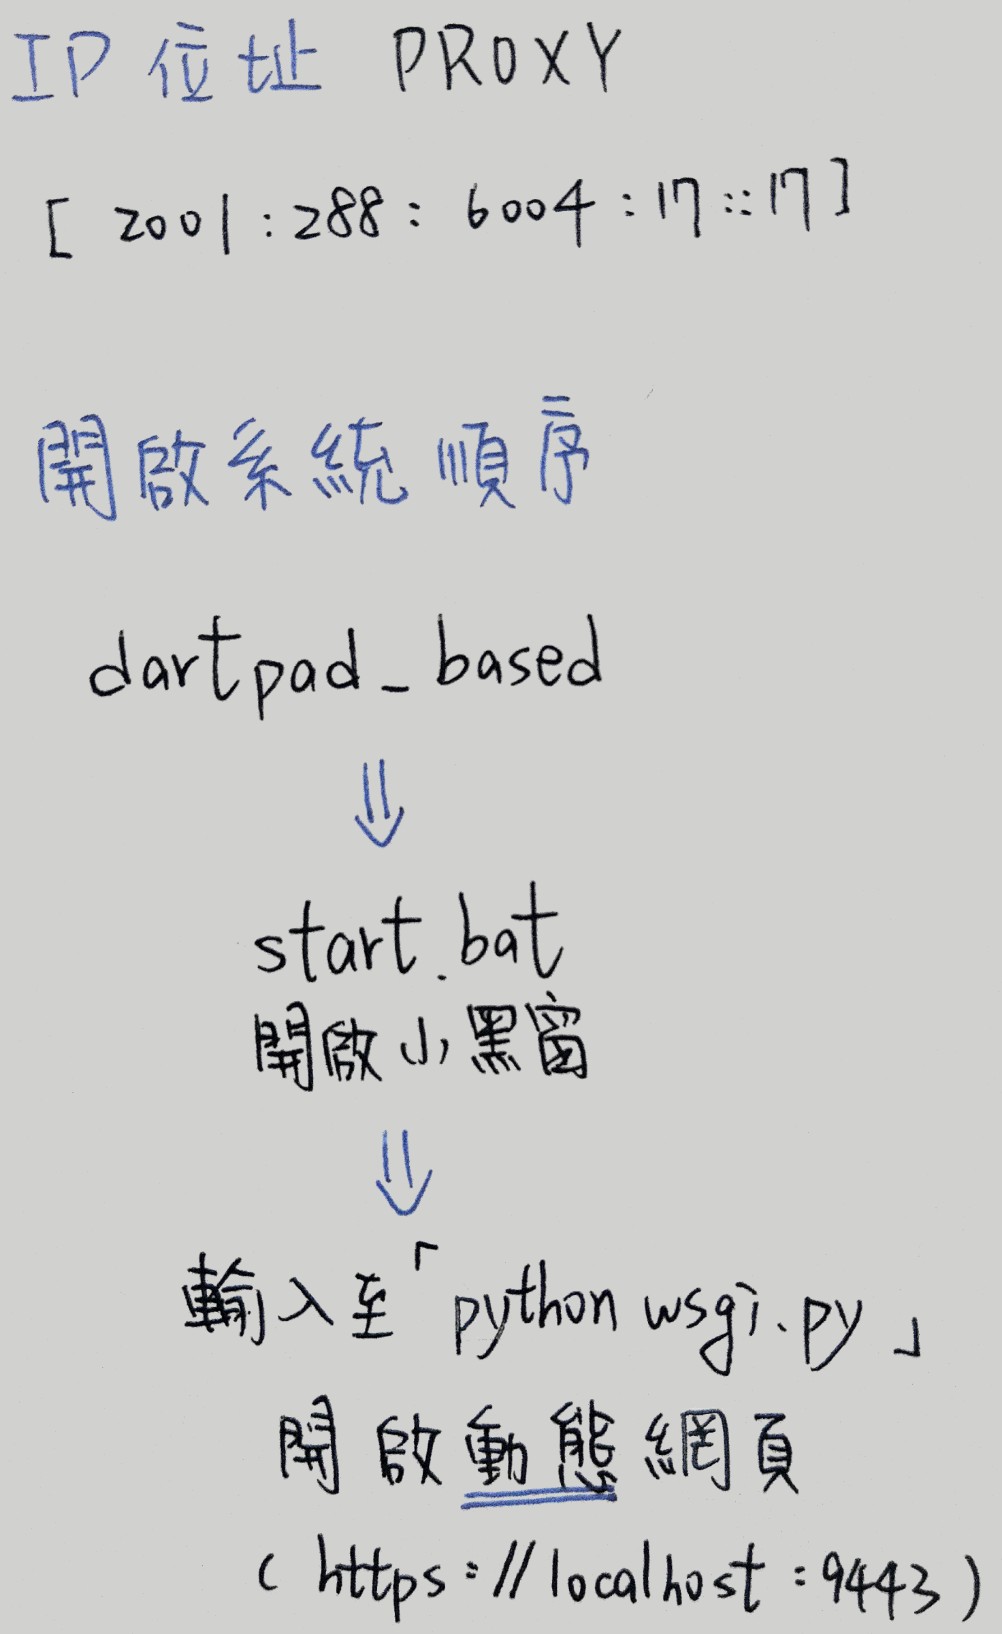 IP 位址 PROXY
[ 2001 : 288 : 6004 : 17 :: 17 ]
開啟系統順序
dartpad_based
⇓
start.bat
開啟小黑窗
⇓
輸入至「python wsgi.py」
開啟動態網頁
( https://localhost:9443 )